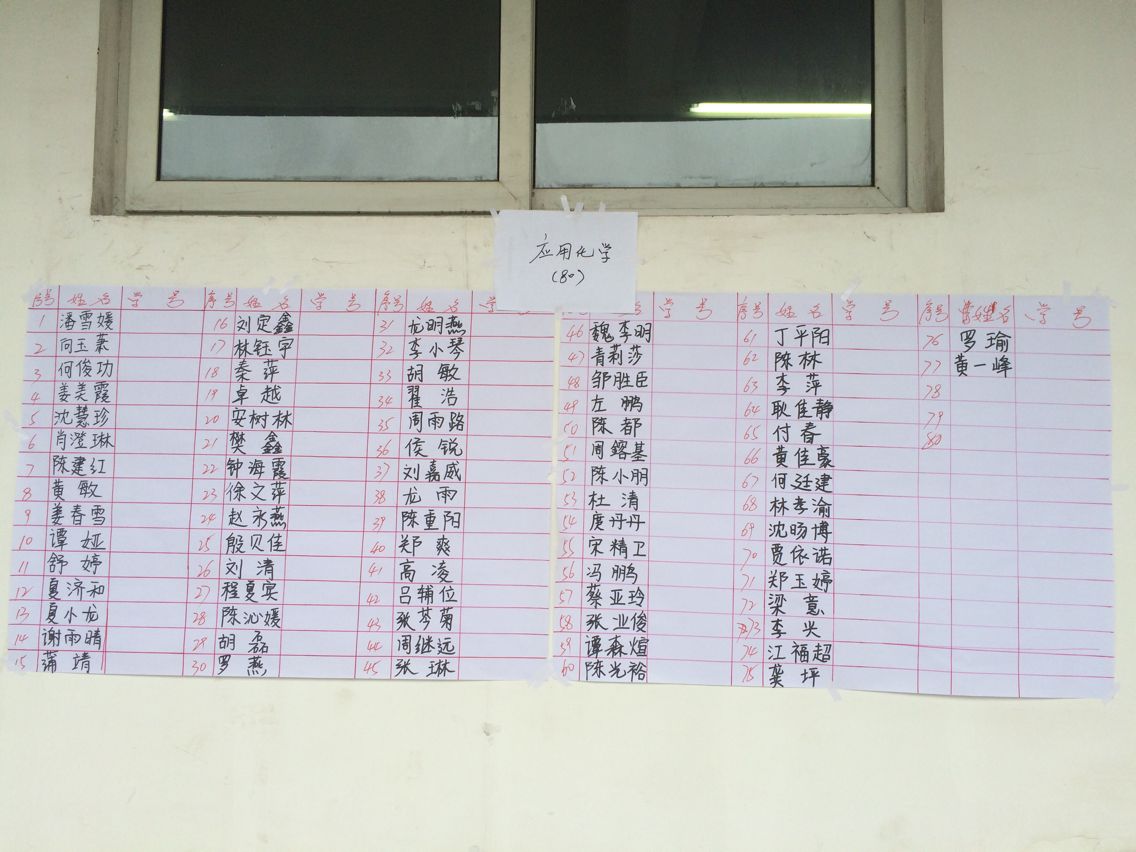 应用化学
(80)
序号 姓名 学号 序号 姓名 学号 序号 姓名 学
1 潘雪媛 16 刘定鑫 31 龙明燕
2 向玉萧 17 林钰宇 32 李小琴
3 何俊功 18 秦萍 33 胡敏
4 姜美霞 19 卓越 34 翟浩
5 沈慧珍 20 安树林 35 周雨路
6 肖澄琳 21 樊鑫 36 侯锐
7 陈建红 22 钟海霞 37 刘嘉威
8 黄敏 23 徐文萍 38 龙雨
9 姜春雪 24 赵永燕 39 陈重阳
10 谭娅 25 殷贝佳 40 郑爽
11 舒婷 26 刘清 41 高凌
12 夏济和 27 程夏实 42 吕辅位
13 夏小龙 28 陈沁媛 43 张芩菊
14 谢雨晴 29 胡磊 44 周继远
15 蒲靖 30 罗燕 45 张琳
名 学号 序号 姓名 学号 序号 姓名 学号
46 魏李明 61 丁平阳 76 罗瑜
47 青莉莎 62 陈林 77 黄一峰
48 邹胜臣 63 李萍 78
49 左鹏 64 耿佳静 79
50 陈都 65 付春 80
51 周鎔基 66 黄佳豪
52 陈小朋 67 何廷建
53 杜清 68 林孝渝
54 庹丹丹 69 沈旸博
55 宋精卫 70 贾依诺
56 冯鹏 71 郑玉婷
57 蔡亚玲 72 梁意
58 张业俊 73 李兴
59 谭森煊 74 江福超
60 陈光裕 75 龚坪